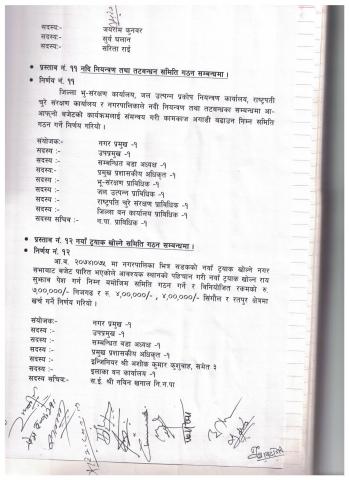 सदस्य:- जयराम कुनवर
सदस्य:- सुर्य घलान
सदस्य:- सरिता राई
• प्रस्ताव नं. ११ नदि नियन्त्रण तथा तटबन्धन समिति गठन सम्बन्धमा ।
• निर्णय नं. ११
जिल्ला भु-संरक्षण कार्यालय, जल उत्पन्न प्रकोप नियन्त्रण कार्यालय, राष्ट्रपती
चुरे संरक्षण कार्यालय र नगरपालिकाले नदी नियन्त्रण तथा तटबन्धका सम्बन्धमा आ-
आफ्नो बजेटको कार्यक्रमलाई संमन्वय गरी कामकाज अगाडी बढाउन निम्न समिति
गठन गर्ने निर्णय गरियो ।
संयोजक:- नगर प्रमुख -१
सदस्य :- उपप्रमुख -१
सदस्य :- सम्बन्धित वडा अध्यक्ष -१
सदस्य :- प्रमुख प्रशासकीय अधिकृत -१
सदस्य :- भु-संरक्षण प्राविधिक -१
सदस्य :- जल उत्पन्न प्राविधिक -१
सदस्य :- राष्ट्रपति चुरे संरक्षण प्राविधिक -१
सदस्य :- जिल्ला वन कार्यालय प्राविधिक -१
सदस्य सचिव :- ग.पा. प्राविधिक -१
• प्रस्ताव नं. १२ नयाँ ट्रयाक खोल्ने समिति गठन सम्बन्धमा ।
• निर्णय नं. १२
आ.व. २०७४।०७५ मा नगरपालिका भित्र सडकको नयाँ ट्रयाक खोल्ने नगर
सभावाट बजेट पारित भएकोले आवश्यक स्थानको पहिचान गरी नयाँ ट्रयाक खोल्न राय
सुझाव पेश गर्न निम्न बमोजिम समिति गठन गर्ने र विनियोजित रकमको रु.
७,००,०००/- निजगढ र रु. ४,००,०००/- , ४,००,०००/- सिंगौल र रतपुर क्षेत्रमा
खर्च गर्ने निर्णय गरियो ।
संयोजक:- नगर प्रमुख -१
सदस्य :- उपप्रमुख -१
सदस्य :- सम्बन्धित वडा अध्यक्ष -१
सदस्य :- प्रमुख प्रशासकीय अधिकृत -१
सदस्य :- इन्जिनियर श्री अशोक कुमार कुशुवाह, समेत ३
सदस्य :- इलाका वन कार्यालय -१
सदस्य सचिव:- स.ई. श्री नविन खनाल नि.न.पा